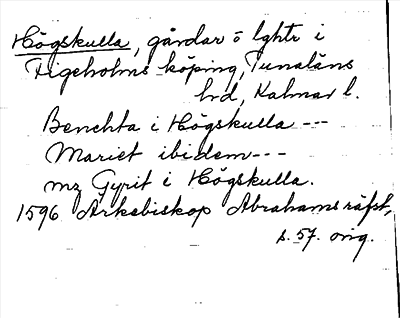 Högskulla, gårdar o lghtr i
Figeholms köping, Tunaläns
hrd, Kalmar l.
Benchta i Högskulla ---
Mariet ibidem ---
mz Gyrit i Högskulla.
1596 Arkebiskop Abrahams räfst,
s. 57. orig.